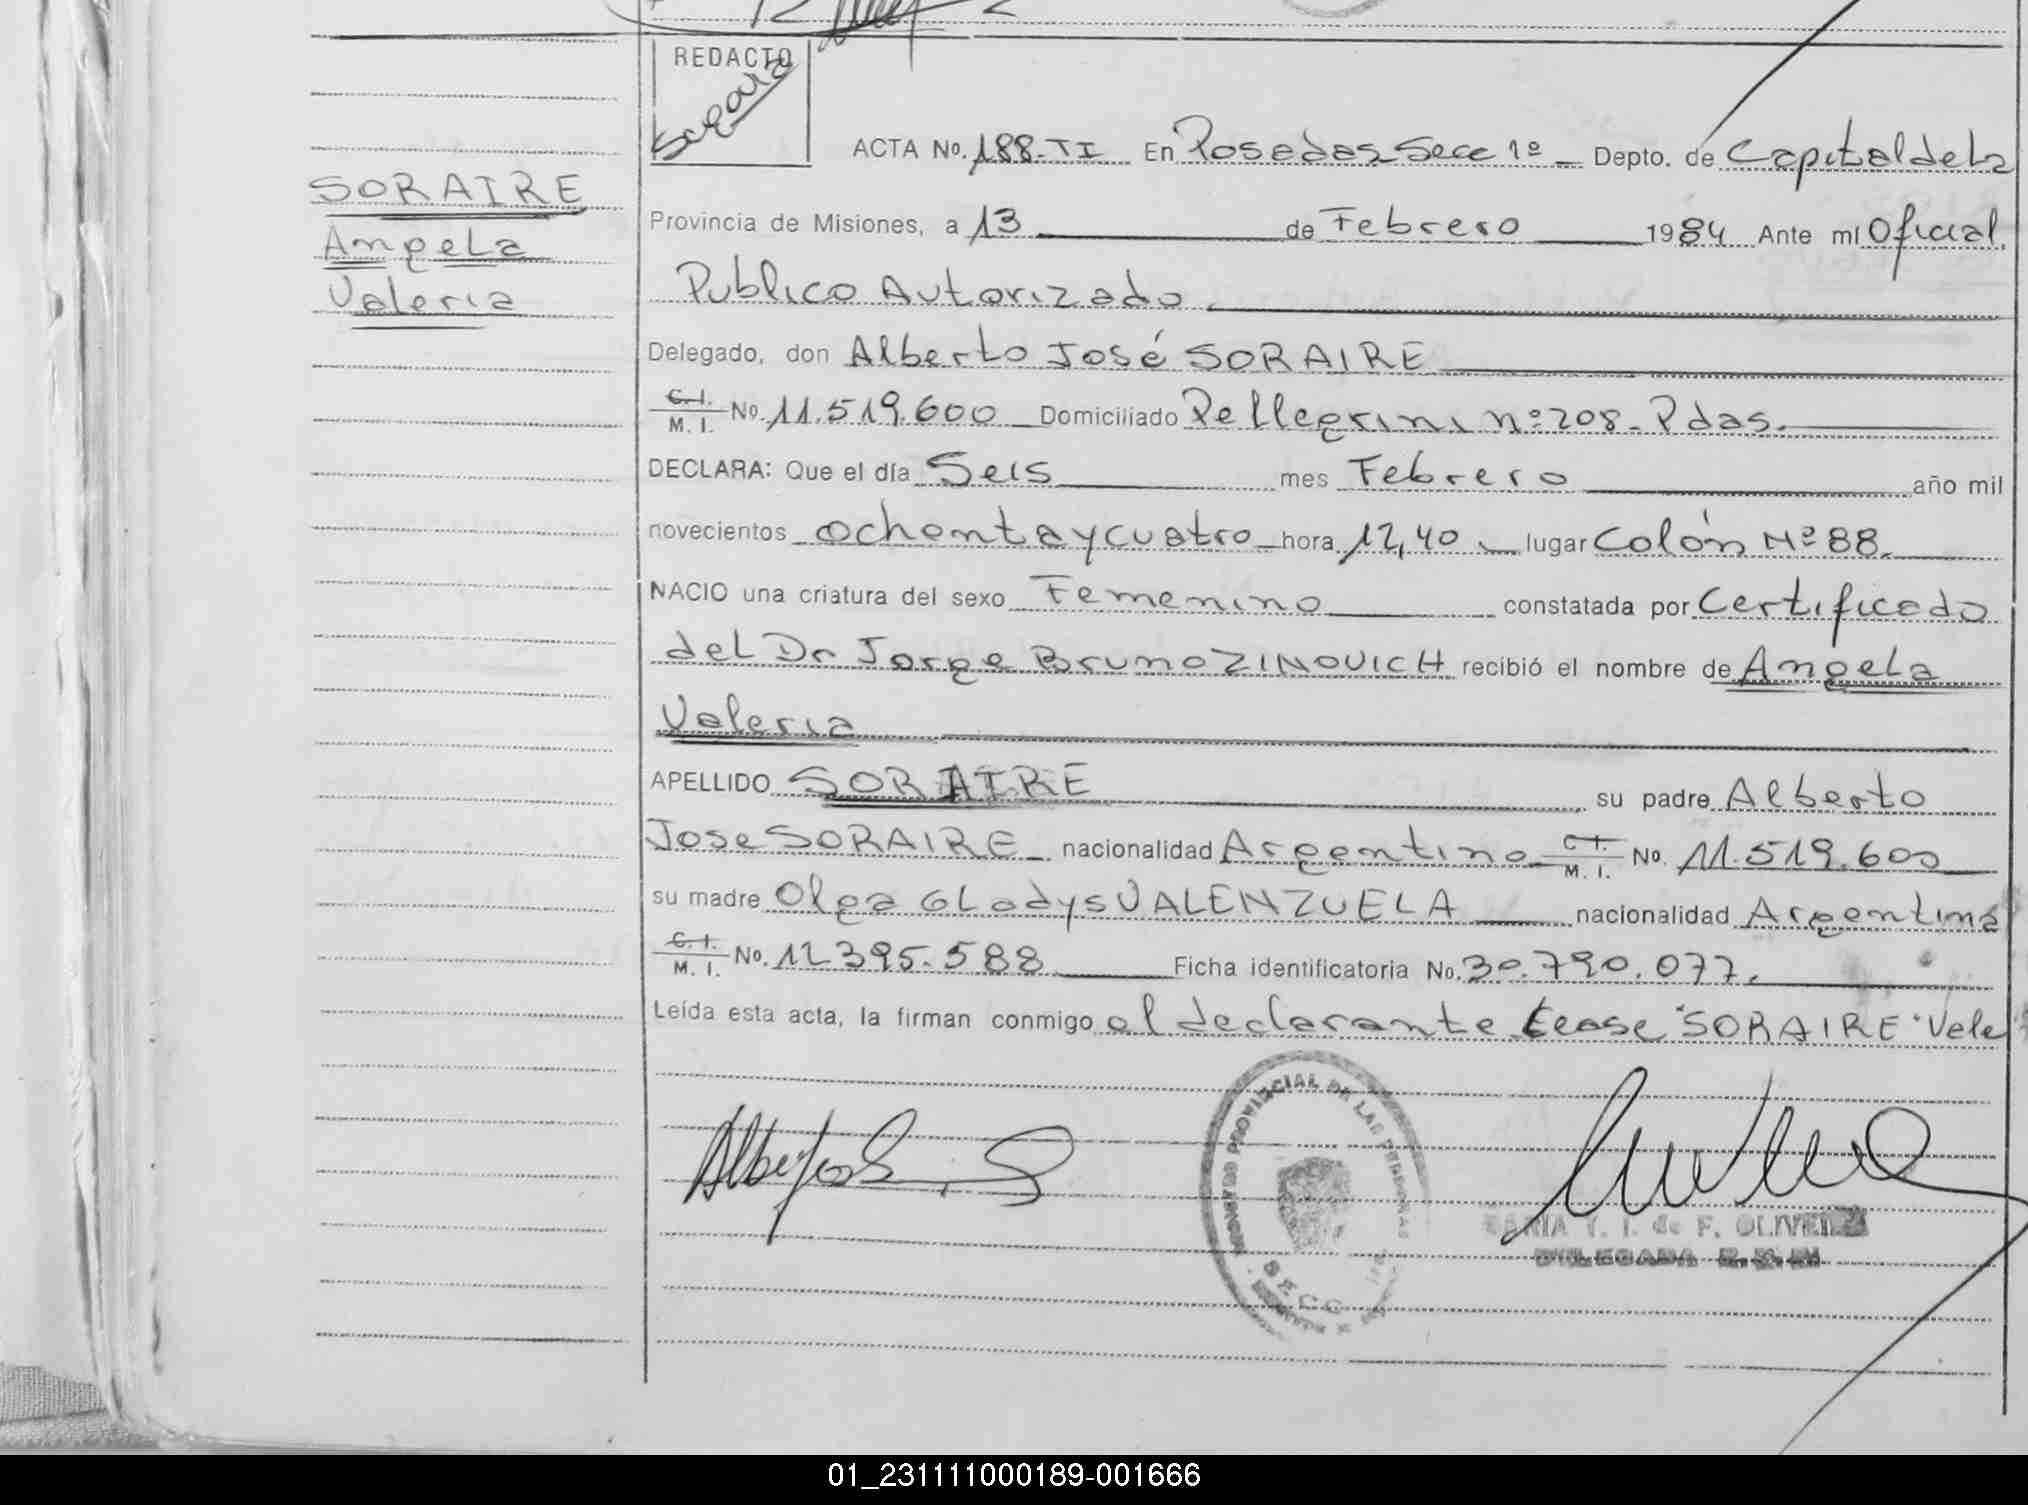 REDACTO
Segara
ACTA No. 188-TI En Posadas Secc 1º Depto. de Capital de la
SORAIRE
Angela
Valeria
Provincia de Misiones, a 13 de Febrero 1984 Ante mí Oficial
Publico Autorizado.
Delegado, don Alberto José SORAIRE
C.I. M. I. No. 11.519.600 Domiciliado Pellegrini nº 208 - Pdas.
DECLARA: Que el día Seis mes Febrero año mil
novecientos ochenta y cuatro hora 12,40 lugar Colón Nº 88.
NACIO una criatura del sexo Femenino constatada por Certificado
del Dr Jorge Bruno ZINOVICH recibió el nombre de Angela
Valeria
APELLIDO SORAIRE su padre Alberto
Jose SORAIRE nacionalidad Argentino C.I. M. I. No. 11.519.600
su madre Olga Gladys VALENZUELA nacionalidad Argentina
C.I. M. I. No. 12.395.588 Ficha identificatoria No. 30.790.077.
Leída esta acta, la firman conmigo el declarante Lease "SORAIRE" Vale
PROVINCIAL DE LAS PERSONAS
SECC
OLIVEIRA
DELEGADA
01_231111000189-001666